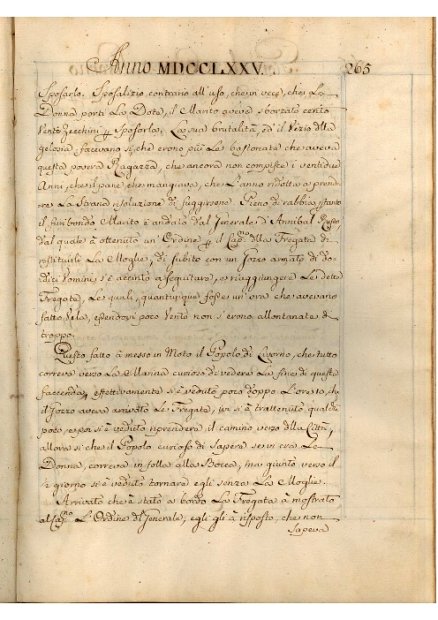 Anno MDCCLXXV. 265
sposarlo. Sposalizio contrario all'uso, che in vece, che la
Donna porti la Dote, il Marito aveva sborzato cento
venti Zecchini sposarla. La sua brutalità, ed il vizio della
gelosia facevano sì che erono più le bastonate che aveva
questa povera Ragazza, che ancora non compisce i ventidue
Anni, che il pane che mangiava, che l'anno ridotta a pren-
dere la strana risoluzione di fuggirsene. Pieno di rabbia
il furibondo Marito è andato dal Jenerale d'Annibal
dal quale à ottenuto un'Ordine il Cap.no della Fregata di
restituirle la Moglie, di subito con un Jozzo armato di do-
dici Uomini s'è accinto a seguitare, e riaggiungere le dette
Fregata, le quali, quantunque fosse un'ora che avevano
fatto Vela, essendovi poco Vento non s'erono allontanate di
troppo.
Questo fatto à messo in Moto il Popolo di Livorno, che tutto
correva verso la Marina curioso di vedere la fine di questa
faccenda, effettivamente si è veduto poco doppo
il Jozzo aveva arrivato le Fregate, ivi si è trattenuto qualche
poco, e poi s'è veduto riprendere il camino verso della Città,
allora sì che il Popolo curioso di sapere se vi era la
Donna, correva in folla alla Bocca, ma giunto verso il
giorno s'è veduto tornare egli senza la Moglie.
Arrivato che è stato a bordo la Fregata à mostrato
al Cap.no l'Ordine del Jenerale, egli gli à risposto, che non
sapeva